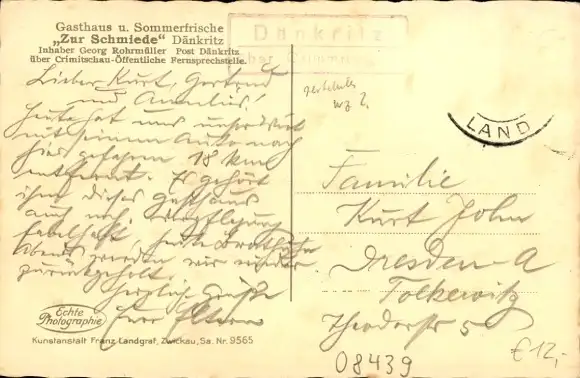 Gasthaus u. Sommerfrische
„Zur Schmiede“ Dänkritz
Inhaber Georg Rohrmüller Post Dänkritz
über Crimitschau-Öffentliche Fernsprechstelle.
Dänkritz
über
Lieber Kurt, Gertrud
und Annelies!
Heute hat uns unser Wirt
mit seinem Auto nach
hier gefahren 18 km
entfernt. Es gehört
ihm dieses Gasthaus
auch noch. Verpflegung
fabelhaft, heute
Abend werden wir wieder
zurückgeholt.
Herzliche Grüße
Eure Eltern
LAND
Familie
Kurt John
Dresden-A
Tolkewitz
Theodorstr 5
Echte
Photographie
Kunstanstalt Franz Landgraf, Zwickau, Sa. Nr. 9565
08439
€12,-